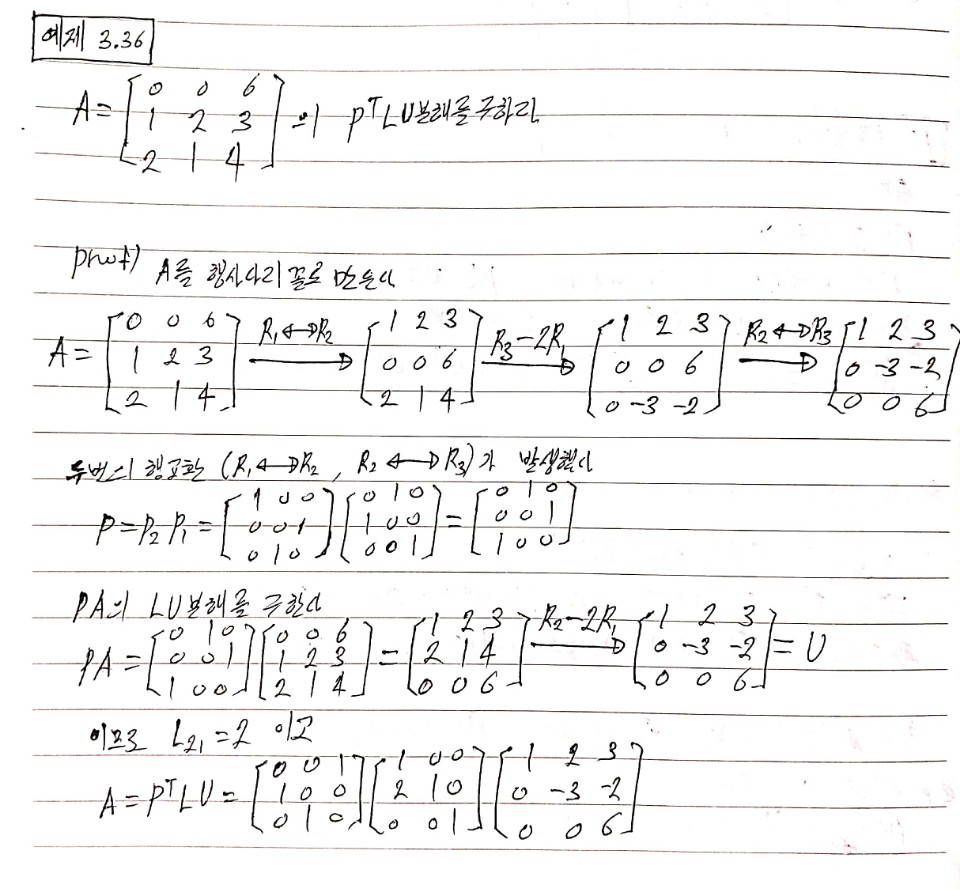 예제 3.36
A = [0 0 6; 1 2 3; 2 1 4] 의 PᵀLU분해를 구하라
proof) A를 행사다리꼴로 만든다
A = [0 0 6; 1 2 3; 2 1 4] R₁↔R₂ → [1 2 3; 0 0 6; 2 1 4] R₃-2R₁ → [1 2 3; 0 0 6; 0 -3 -2] R₂↔R₃ → [1 2 3; 0 -3 -2; 0 0 6]
두번의 행교환 (R₁↔R₂ , R₂↔R₃)가 발생했다
P = P₂P₁ = [1 0 0; 0 0 1; 0 1 0] [0 1 0; 1 0 0; 0 0 1] = [0 1 0; 0 0 1; 1 0 0]
PA의 LU분해를 구한다
PA = [0 1 0; 0 0 1; 1 0 0] [0 0 6; 1 2 3; 2 1 4] = [1 2 3; 2 1 4; 0 0 6] R₂-2R₁ → [1 2 3; 0 -3 -2; 0 0 6] = U
이므로 L₂₁ = 2 이고
A = PᵀLU = [0 0 1; 1 0 0; 0 1 0] [1 0 0; 2 1 0; 0 0 1] [1 2 3; 0 -3 -2; 0 0 6]